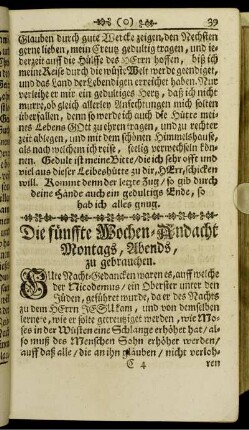 (o) 39
Glauben durch gute Wercke zeigen, den Nechsten
gerne lieben, mein Creutz gedultig tragen, und je-
derzeit auff die Hülffe des HErrn hoffen, biß ich
meine Reise durch die wüste Welt werde geendiget,
und das Land der Lebendigen erreichet haben. Nur
verleihe er mir ein gedultiges Hertz, daß ich nicht
murre, ob gleich allerley Anfechtungen mich solten
überfallen, denn so werde ich auch die Hütte mei-
nes Lebens GOtt zuehren tragen, und zu rechter
zeit ablegen, und mit dem schönen Himmelshause,
als nach welchem ich reise, seelig verwechseln kön-
nen. Gedult ist meine Bitte/die ich sehr offt und
viel aus dieser Leibeshütte zu dir, HErr, schicken
will. Kommt denn der letzte Zug/ so gib durch
deine Hände auch ein gedultigs Ende, so
hab ich alles gnug.
Die fünffte Wochen-Andacht
Montags, Abends,
zu gebrauchen.
Gute Nacht-Gedancken waren es, auff welche
der Nicodemus/ ein Oberster unter den
Jüden, geführet wurde, da er des Nachts
zu dem HERRN JESU kam, und von demselben
lernete, wie er solte gecreutziget werden, wie Mo-
ses in der Wüsten eine Schlange erhöhet hat/ al-
so muß des Menschen Sohn erhöhet werden/
auff daß alle / die an ihn gläuben / nicht verloh-
C 4 ren